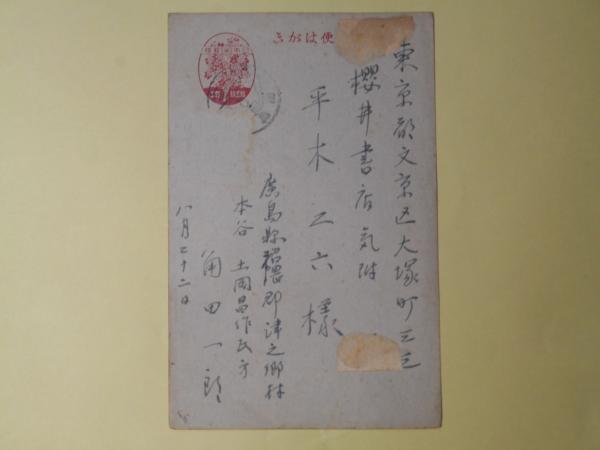 便はがき
東京都文京区大塚町三ノ三
櫻井書店気附
平木二六様
廣島縣沼隈郡津之郷村
本谷 土岡昌作氏方
角田一郎
八月二十二日